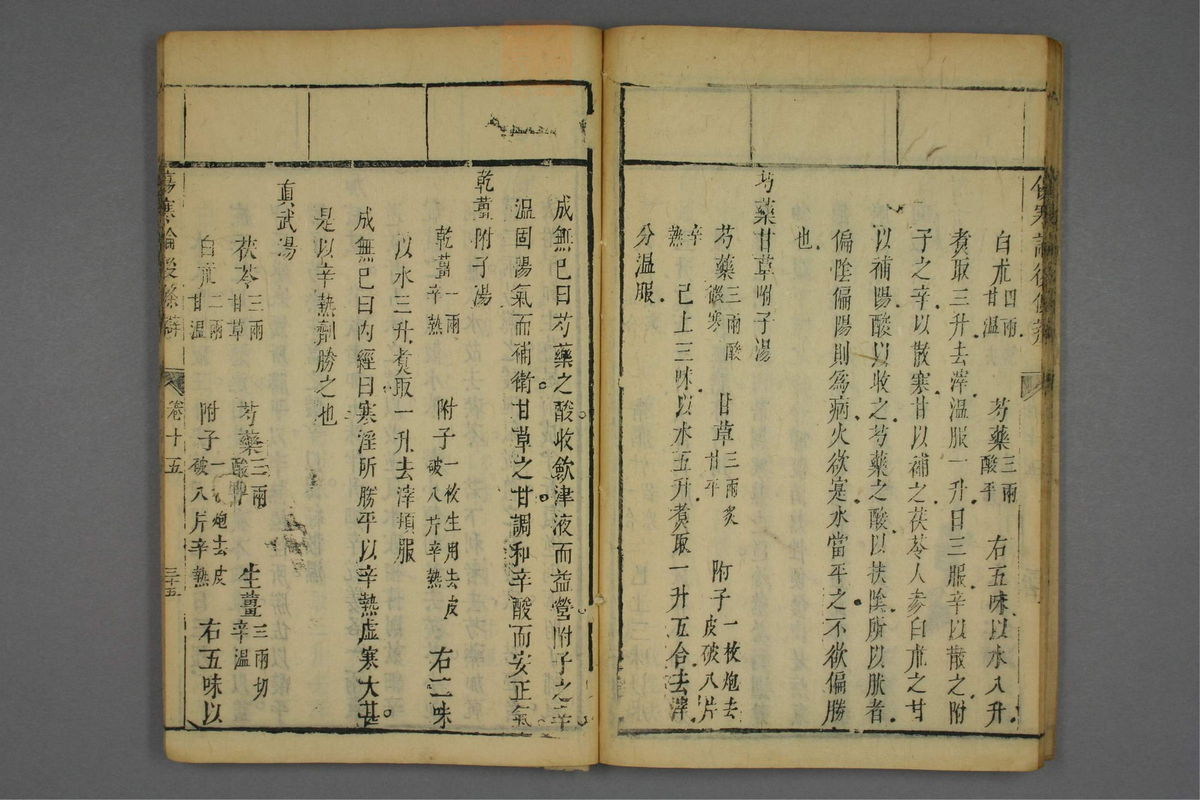 傷寒論後條辨
白朮四兩甘溫 芍藥三兩酸平 右五味以水八升
煑取三升去滓溫服一升日三服辛以散之附
子之辛以散寒甘以補之茯苓人參白朮之甘
以補陽酸以收之芍藥之酸以扶陰所以肰者
偏陰偏陽則爲病火欲寔水當平之不欲偏勝
也
芍藥甘草附子湯
芍藥三兩酸微寒 甘草三兩炙甘平 附子一枚炮去皮破八片
辛熱 已上三味以水五升煑取一升五合去滓
分溫服
成無已曰芍藥之酸收歛津液而益營附子之辛
溫固陽氣而補衛甘草之甘調和辛酸而安正氣
乾薑附子湯
乾薑一兩辛熱 附子一枚生用去皮破八片辛熱 右二味
以水三升煑取一升去滓頓服
成無已曰內經曰寒淫所勝平以辛熱虛寒大甚
是以辛熱劑勝之也
眞武湯
茯苓三兩甘草 芍藥三兩酸 生薑三兩切辛溫
白朮二兩甘溫 附子一枚炮去皮破八片辛熱 右五味以
傷寒論後條辨 卷十五 三十五